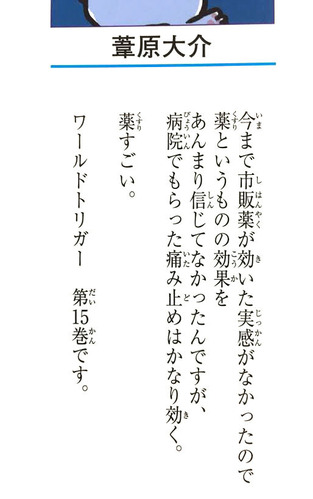 葦原大介
今まで市販薬が効いた実感がなかったので
薬というものの効果を
あんまり信じてなかったんですが、
病院でもらった痛み止めはかなり効く。
薬すごい。
ワールドトリガー　第15巻です。